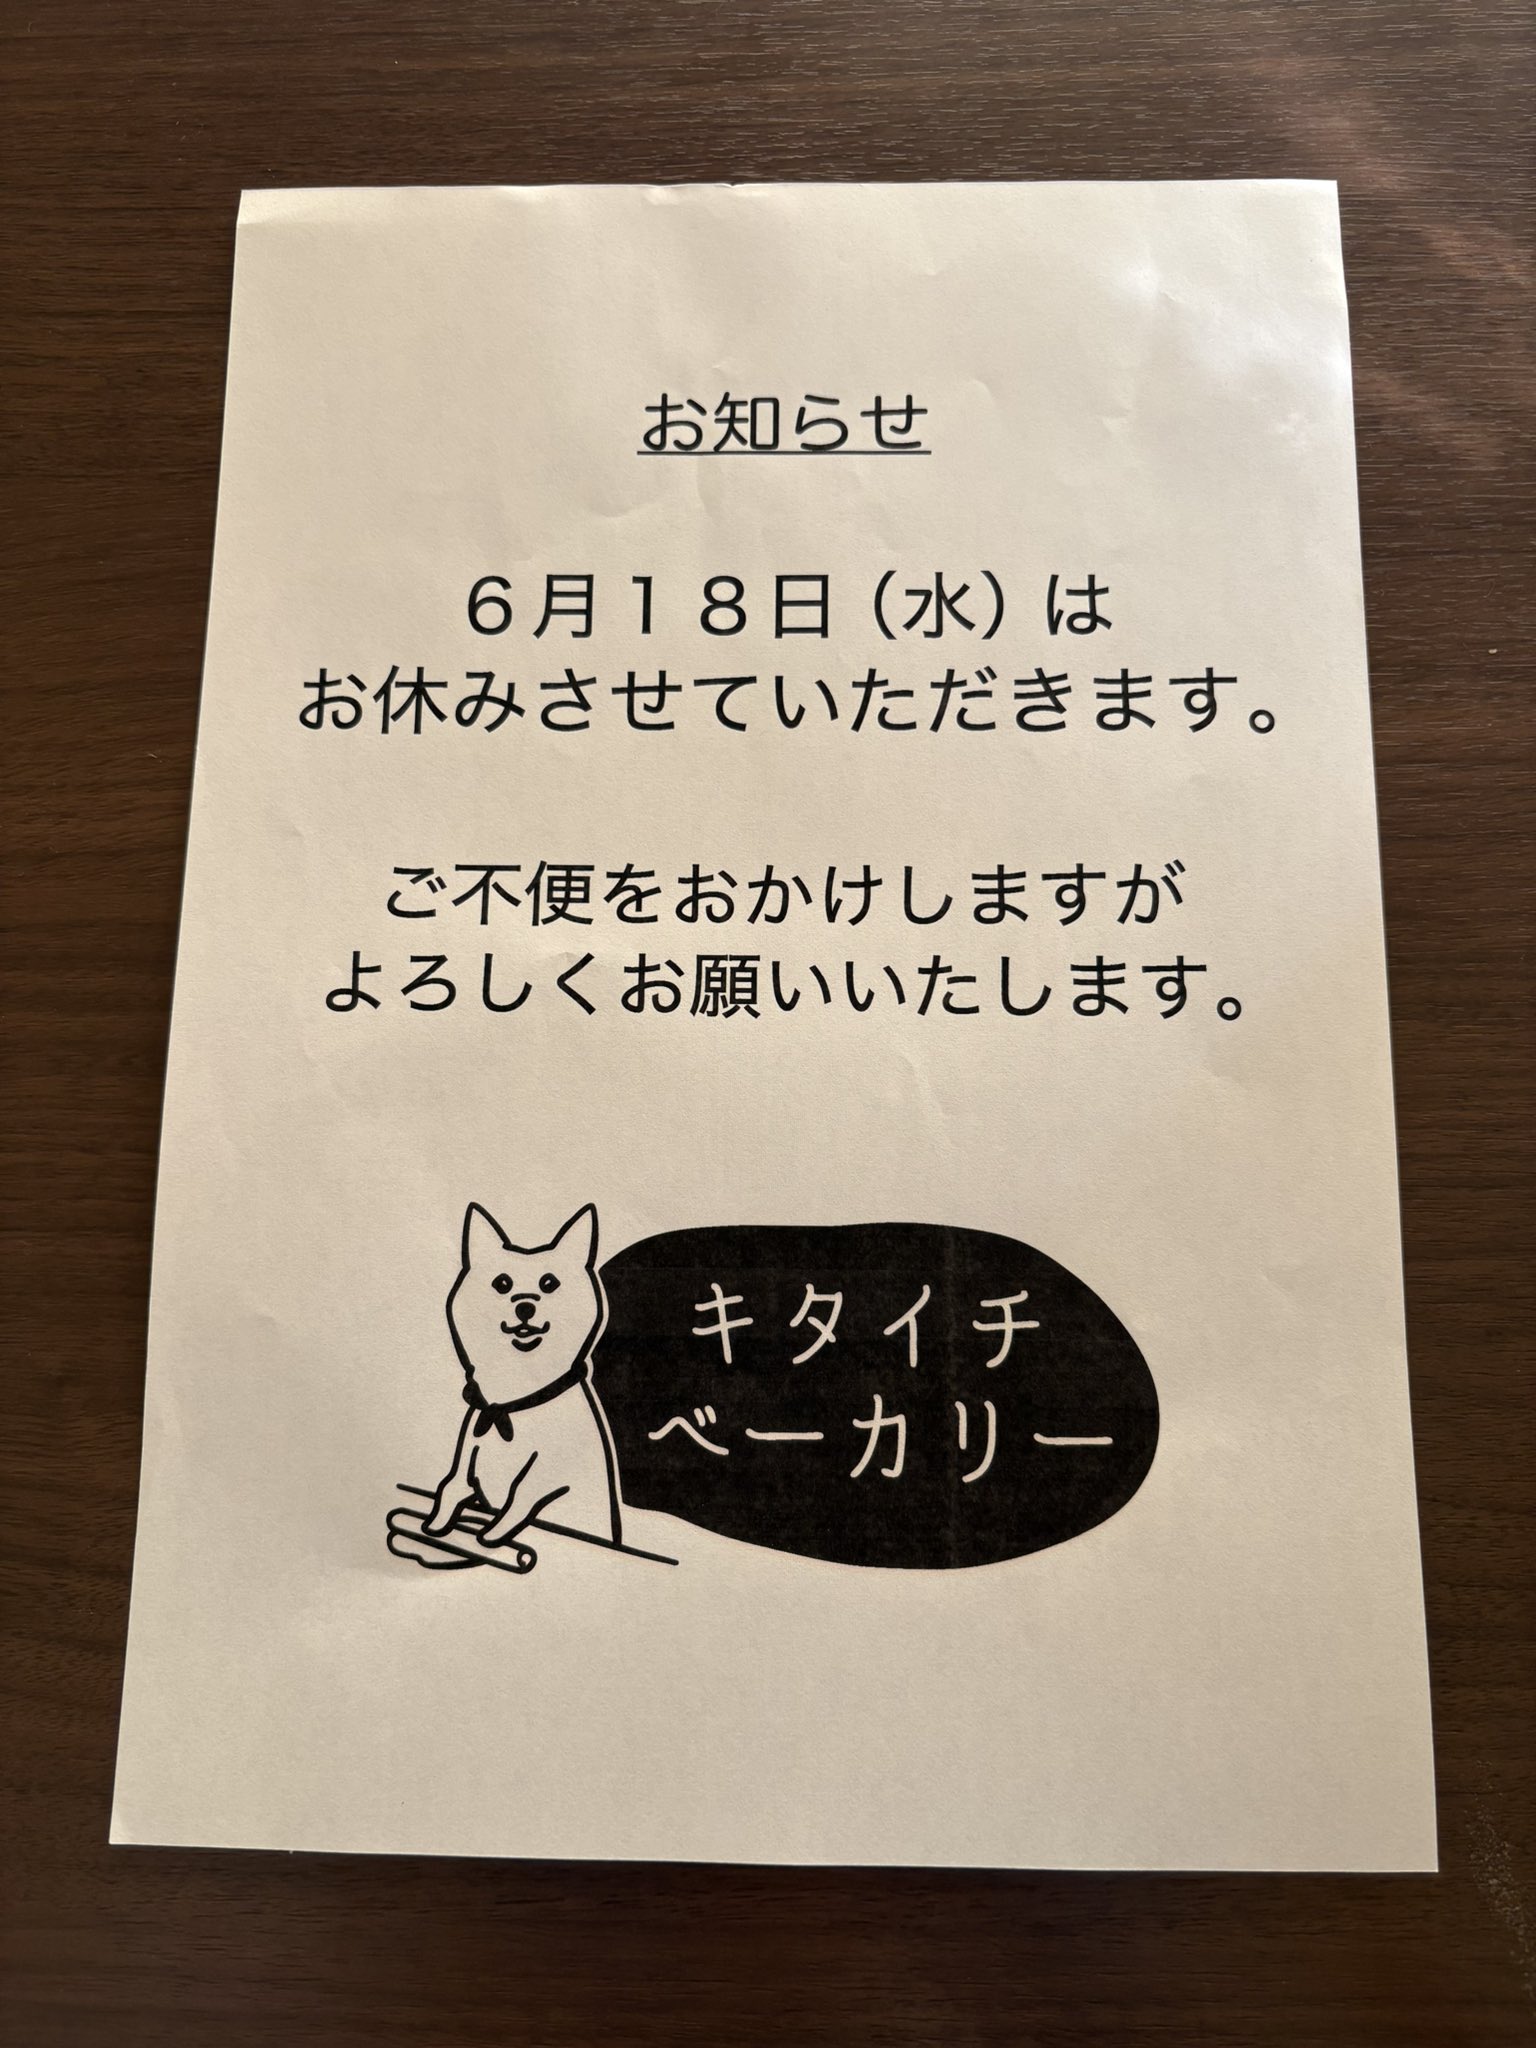 お知らせ
６月１８日（水）は
お休みさせていただきます。
ご不便をおかけしますが
よろしくお願いいたします。
キタイチ
ベーカリー